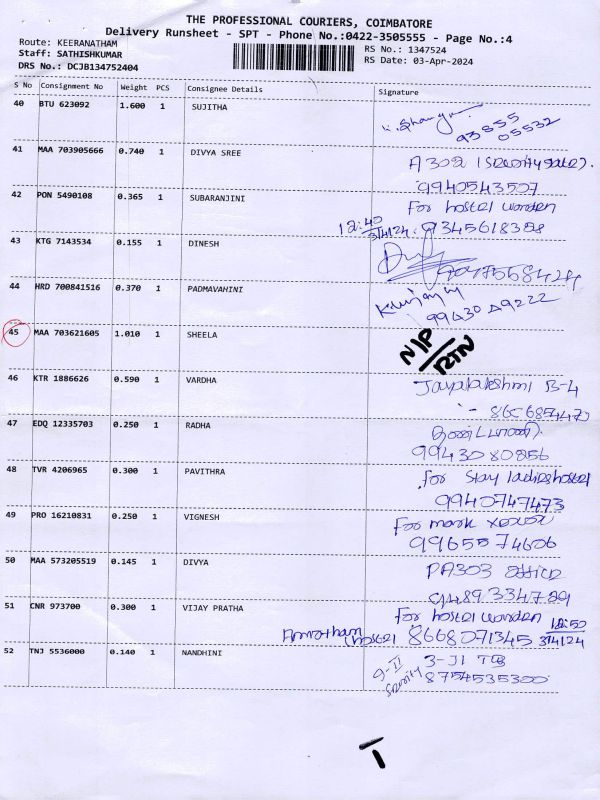 THE PROFESSIONAL COURIERS, COIMBATORE
Delivery Runsheet - SPT - Phone No.:0422-3505555 - Page No.:4
Route: KEERANATHAM
RS No.: 1347524
Staff: SATHISHKUMAR
RS Date: 03-Apr-2024
DRS No.: DCJB134752404
S No Consignment No Weight PCS Consignee Details Signature
40 BTU 623092 1.600 1 SUJITHA
93555
05532
41 MAA 703905666 0.740 1 DIVYA SREE
A302 (Security gate).
9940543507
42 PON 5490108 0.365 1 SUBARANJINI
For hostel warden
12:40
3/4/24. 9345618388
43 KTG 7143534 0.155 1 DINESH
44 HRD 700841516 0.370 1 PADMAVAHINI
99430 49222
45 MAA 703621605 1.010 1 SHEELA
N/P
RTN
46 KTR 1886626 0.590 1 VARDHA
Jayalakshmi B-4
47 EDQ 12335703 0.250 1 RADHA
9943080856
48 TVR 4206965 0.300 1 PAVITHRA
For Stay ladies hostel
9940747473
49 PRO 16210831 0.250 1 VIGNESH
For mark xerox
9965574606
50 MAA 573205519 0.145 1 DIVYA
PA303 office
51 CNR 973700 0.300 1 VIJAY PRATHA
For hostel warden 12:50
hostel 8668071345 3/4/24
52 TNJ 5536000 0.140 1 NANDHINI
8754535300